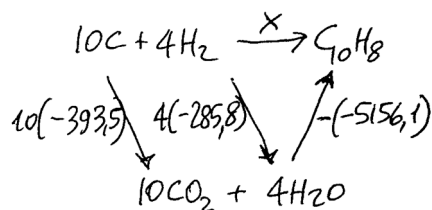 x
10C + 4H₂ → C₁₀H₈
10(-393,5) 4(-285,8) -(-5156,1)
10CO₂ + 4H₂O